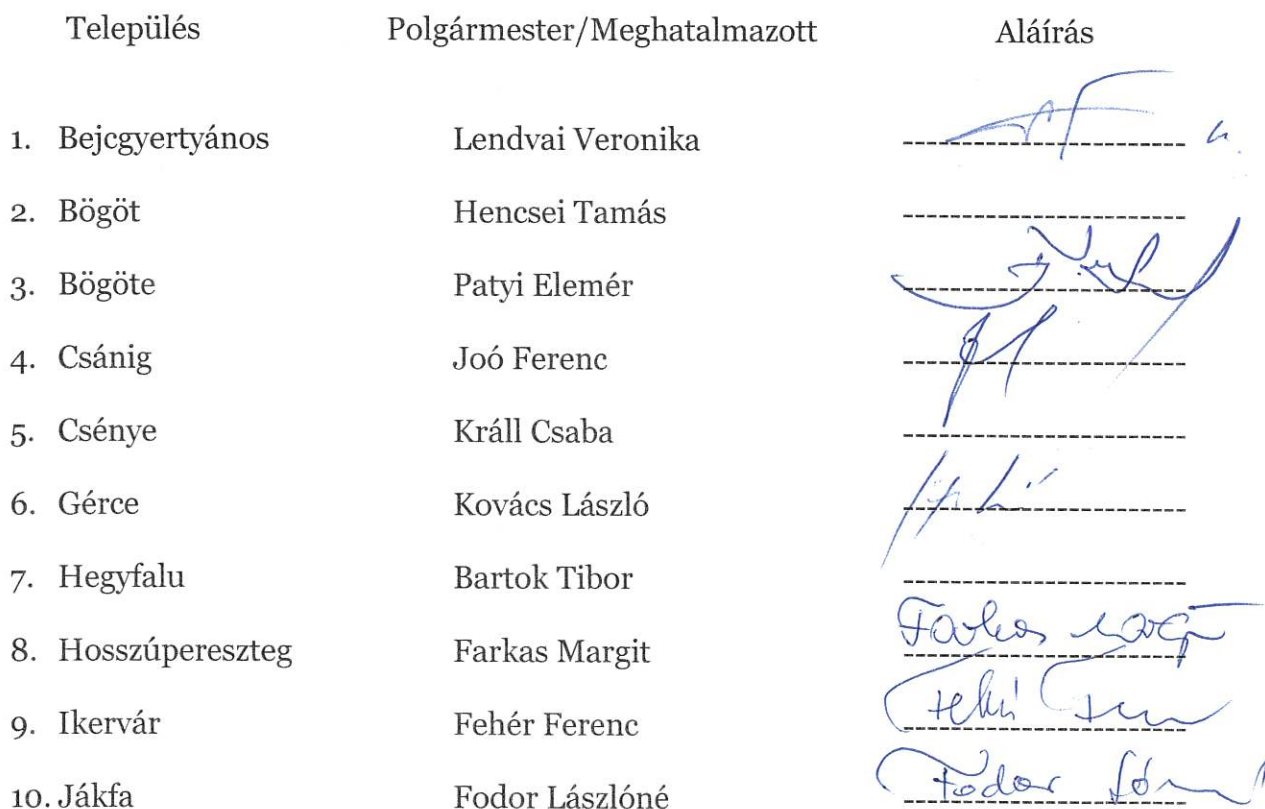 Település Polgármester/Meghatalmazott Aláírás
1. Bejcgyertyános Lendvai Veronika
2. Bögöt Hencsei Tamás
3. Bögöte Patyi Elemér
4. Csánig Joó Ferenc
5. Csénye Králl Csaba
6. Gérce Kovács László
7. Hegyfalu Bartok Tibor
8. Hosszúpereszteg Farkas Margit Farkas
9. Ikervár Fehér Ferenc
10. Jákfa Fodor Lászlóné Fodor